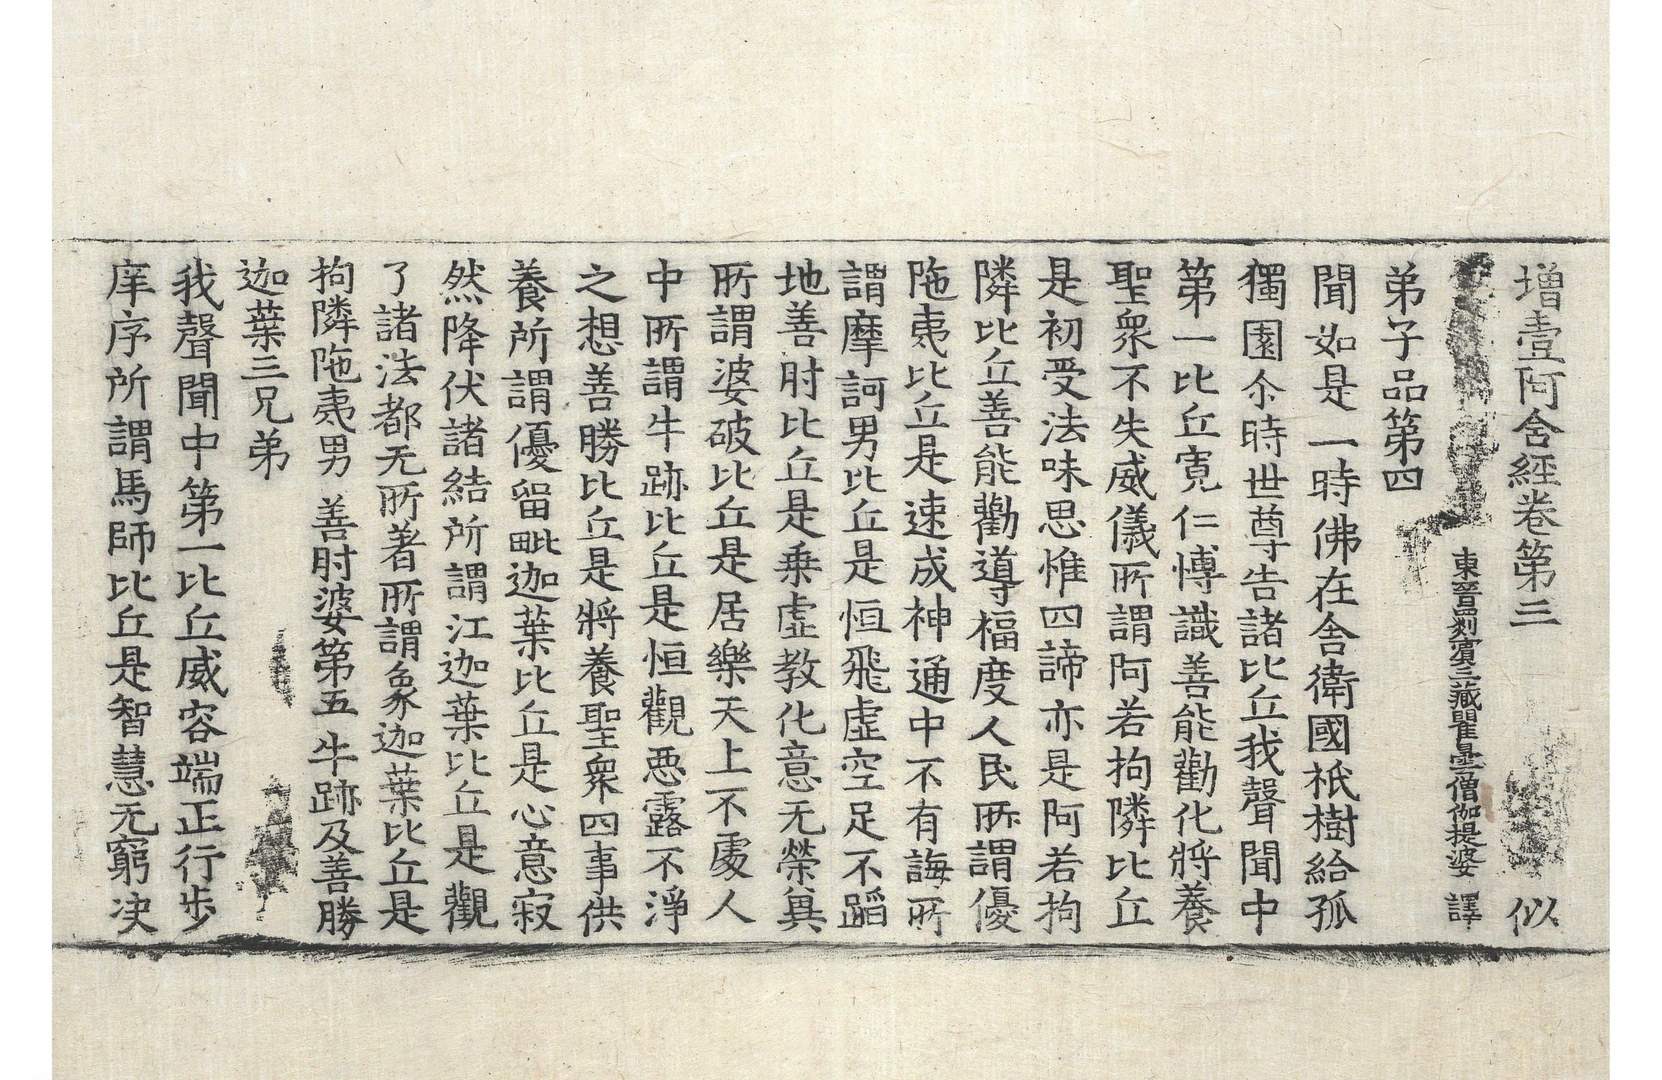 增壹阿含經卷第三 似
東晉罽賓三藏瞿曇僧伽提婆 譯
弟子品第四
聞如是一時佛在舍衛國祇樹給孤
獨園尒時世尊告諸比丘我聲聞中
第一比丘寬仁愽識善能勸化將養
聖衆不失威儀所謂阿若拘隣比丘
是初受法味思惟四諦亦是阿若拘
隣比丘善能勸導福度人民所謂優
陁夷比丘是速成神通中不有誨所
謂摩訶男比丘是恒飛虛空足不蹈
地善肘比丘是乗虛教化意无榮冀
所謂婆破比丘是居樂天上不處人
中所謂牛跡比丘是恒觀惡露不淨
之想善勝比丘是將養聖衆四事供
養所謂優留毗迦葉比丘是心意寂
然降伏諸結所謂江迦葉比丘是觀
了諸法都无所著所謂象迦葉比丘是
拘隣陁夷男 善肘婆第五 牛跡及善勝
迦葉三兄弟
我聲聞中第一比丘威容端正行步
庠序所謂馬師比丘是智慧无窮决